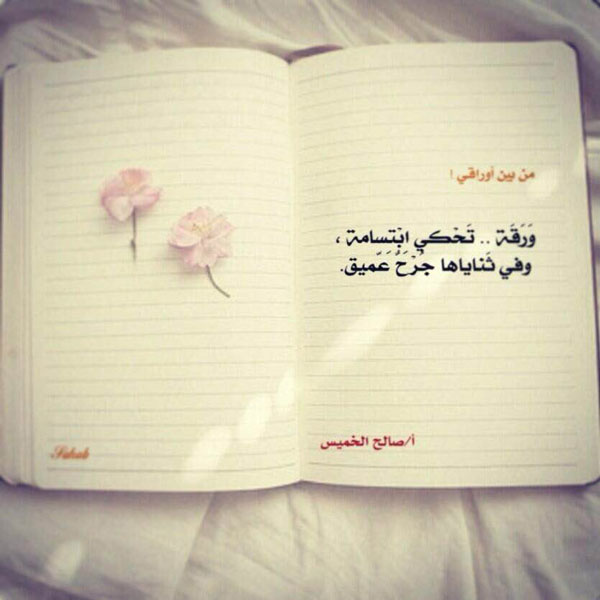 من بين أوراقي !
وَرَقَة .. تَحْكي ابْتسامة ،
وفي ثَناياها جُرْحٌ عَميق.
أ/صالح الخميس